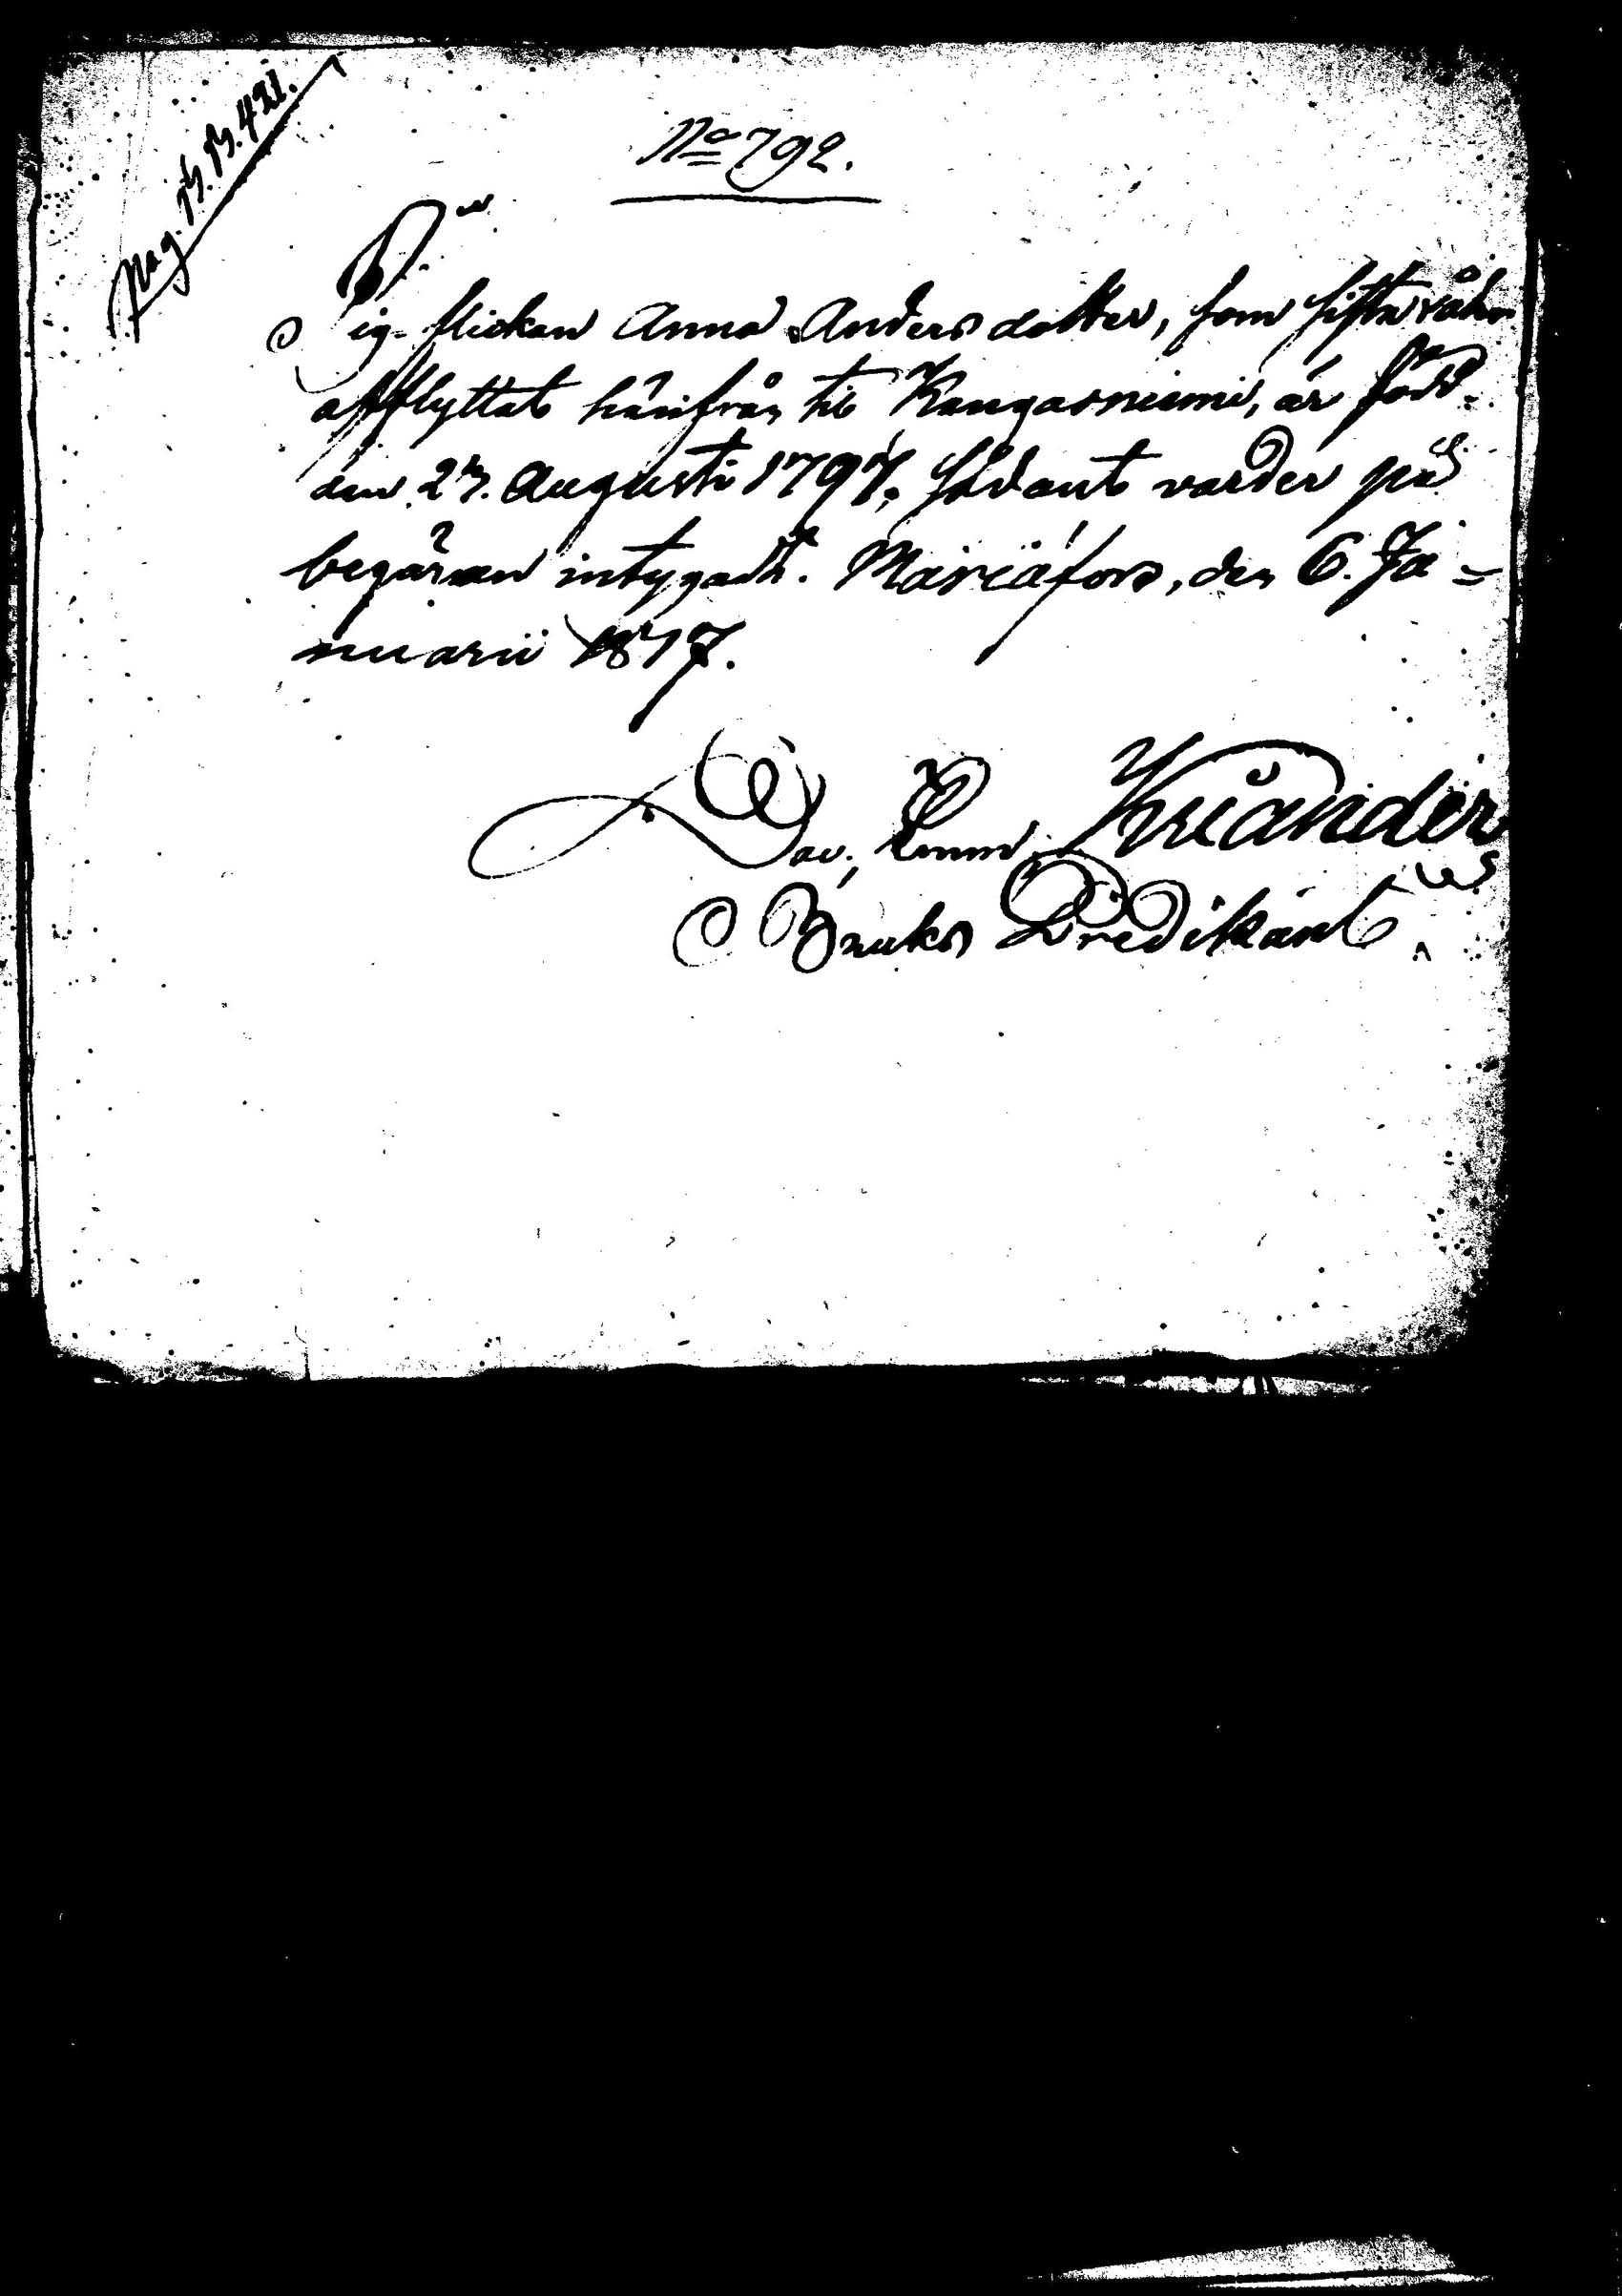 Pag. B. B. 421.
No 792.
Pigflickan Anna Andersdotter, som sistn
afflyttat härifrån til Kangasniemi, är född
den 27. Augusti 1797; sådant varder på
begäran intygadt. Mariæfors, den 6. Ja=
nuarii 1817.
Dav. Emm. Kiander
Bruks Predikant.